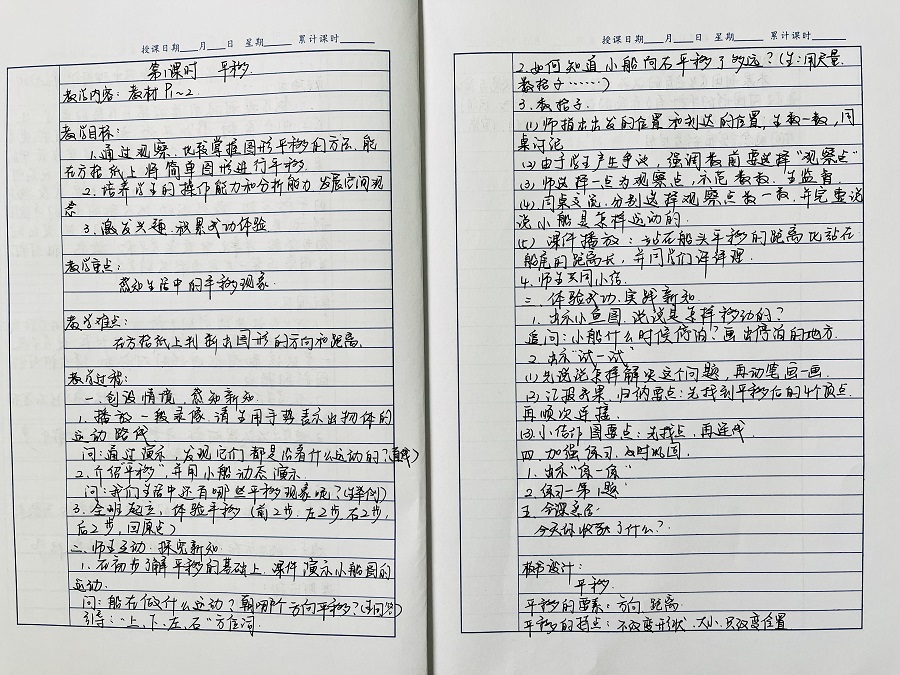 授课日期____月____日 星期____ 累计课时____
第1课时 平移.
教学内容: 教材 P1~2.
教学目标:
1.通过观察、比较掌握图形平移的方法, 能
在方格纸上将简单图形进行平移.
2. 培养学生的操作能力和分析能力 发展空间观
念
3. 激发兴趣. 积累成功体验
教学重点:
感知生活中的平移现象.
教学难点:
在方格纸上判断出图形的方向和距离.
教学过程:
一. 创设情境、感知新知.
1. 播放一段录像, 请生用手势表示出物体的
运动路线
问: 通过演示, 发现它们都是沿着什么运动的?(直线)
2. 介绍"平移" 并用小船动态演示.
问: 我们生活中还有哪些平移现象呢? (生举例)
3. 全班起立, 体验平移 (前2步. 左2步, 右2步,
后2步, 回原点)
二. 师生互动. 探究新知.
1. 在初步了解平移的基础上. 课件演示小船图的
运动.
问: 船在做什么运动? 朝哪个方向平移? (生回答)
引导: "上、下、左、右" 方位词.
授课日期____月____日 星期____ 累计课时____
2. 如何知道小船向右平移了多远? (生: 用尺量.
数格子……)
3. 数格子.
(1) 师指出出发的位置和到达的位置, 生数一数, 同
桌讨论
(2) 由于学生产生争议, 强调数前要选择"观察点"
(3) 师选择一点为观察点, 示范数数. 生监督.
(4) 同桌交流. 分别选择观察点数一数. 并完整说
说小船是怎样运动的.
(5) 课件播放: 站在船头平移的距离比站在
船尾的距离长, 并问我们评评理.
4. 师生共同小结.
三. 体验成功. 实践新知.
1. 出示小鱼图. 说说是怎样移动的?
追问: 小船什么时候停泊? 画出停泊的地方.
2. 出示"试一试"
(1) 先说说怎样解决这个问题, 再动笔画一画.
(2) 汇报成果, 归纳要点: 先找到平移后的4个顶点.
再顺次连接.
(3) 小结作图要点: 先找点, 再连线.
四. 加强练习. 及时巩固.
1. 出示"练一练"
2. 练习一第1题
五. 全课总结
今天你收获了什么?
板书设计:
平移.
平移的要素: 方向 距离
平移的特点: 不改变形状、大小. 只改变位置